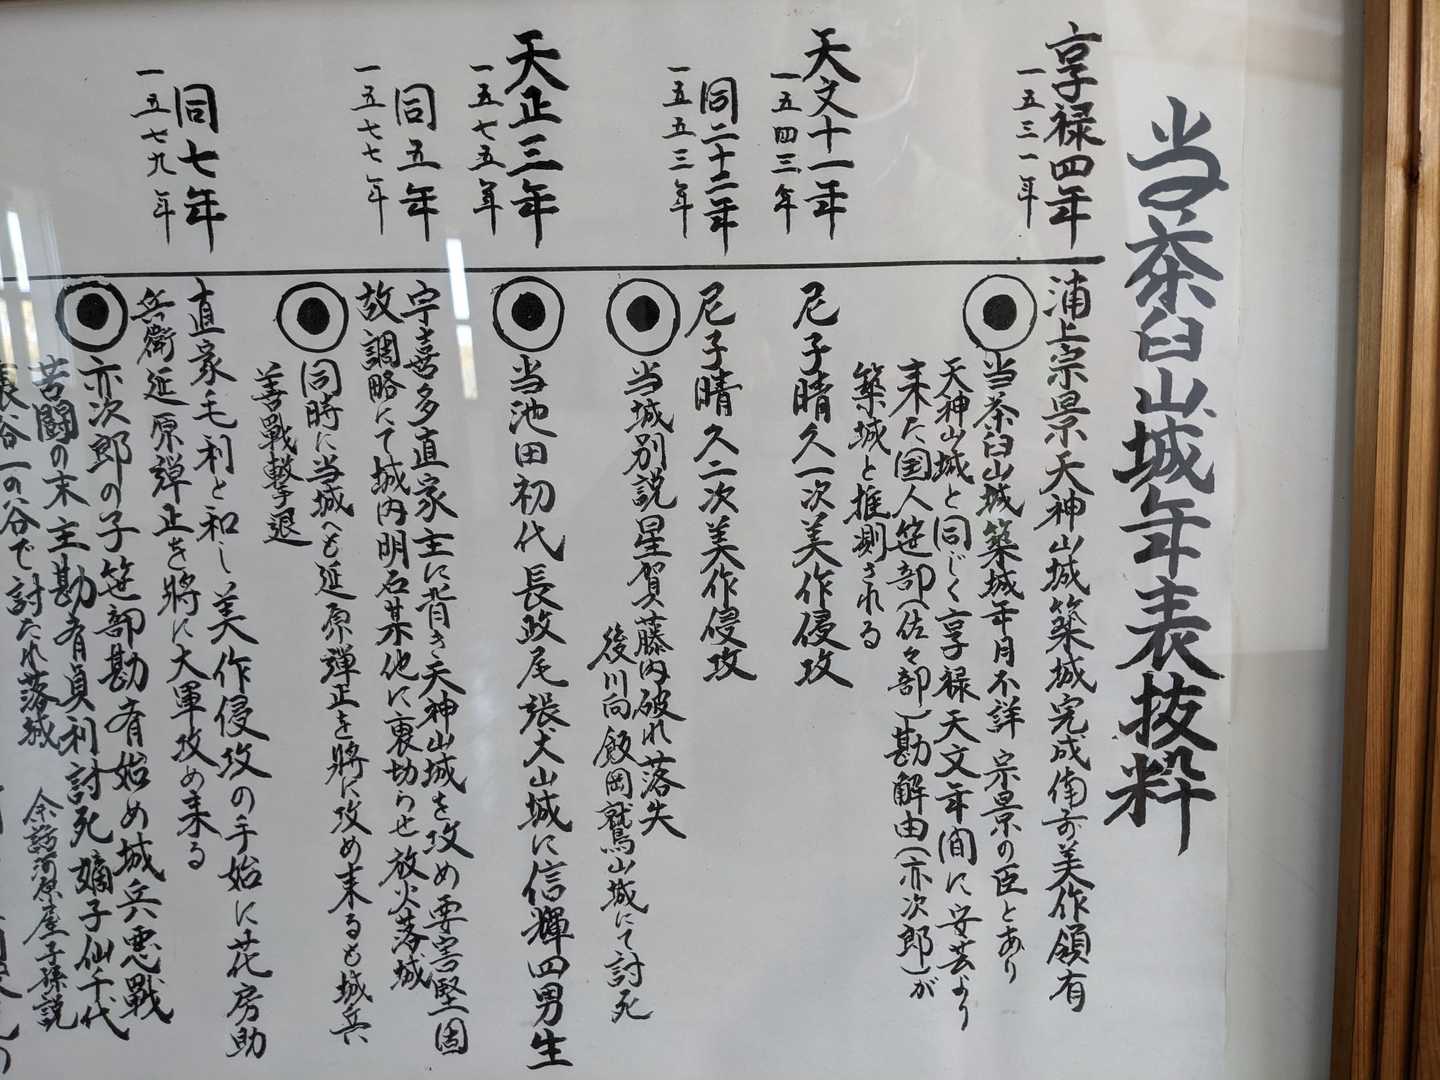 当茶臼山城年表抜粋
享禄四年
一五三一年
浦上宗景天神山城築城完成備前美作領有
◉当茶臼山城築城年月不詳 宗景の臣とあり
天神山城と同じく享禄天文年間に安芸より
来た国人笹部(佐々部)勘解由(亦次郎)が
築城と推測される
天文十一年
一五四三年
尼子晴久一次美作侵攻
同二十二年
一五五三年
尼子晴久二次美作侵攻
◉当城別説星賀藤内破れ落失
後川向飯岡鷲山城にて討死
天正三年
一五七五年
◉当池田初代長政尾張犬山城に信輝四男生
同五年
一五七七年
宇喜多直家主に背き天神山城を攻め要害堅固
故調略にて城内明石某他に裏切らせ放火落城
◉同時に当城へも延原弾正を将に攻め来るも城兵
善戦撃退
同七年
一五七九年
直家毛利と和し美作侵攻の手始に花房助
兵衛延原弾正を将に大軍攻め来る
◉亦次郎の子笹部勘有始め城兵悪戦
苦闘の末主勘有貞利討死嫡子仙千代
長谷一の谷で討たれ落城